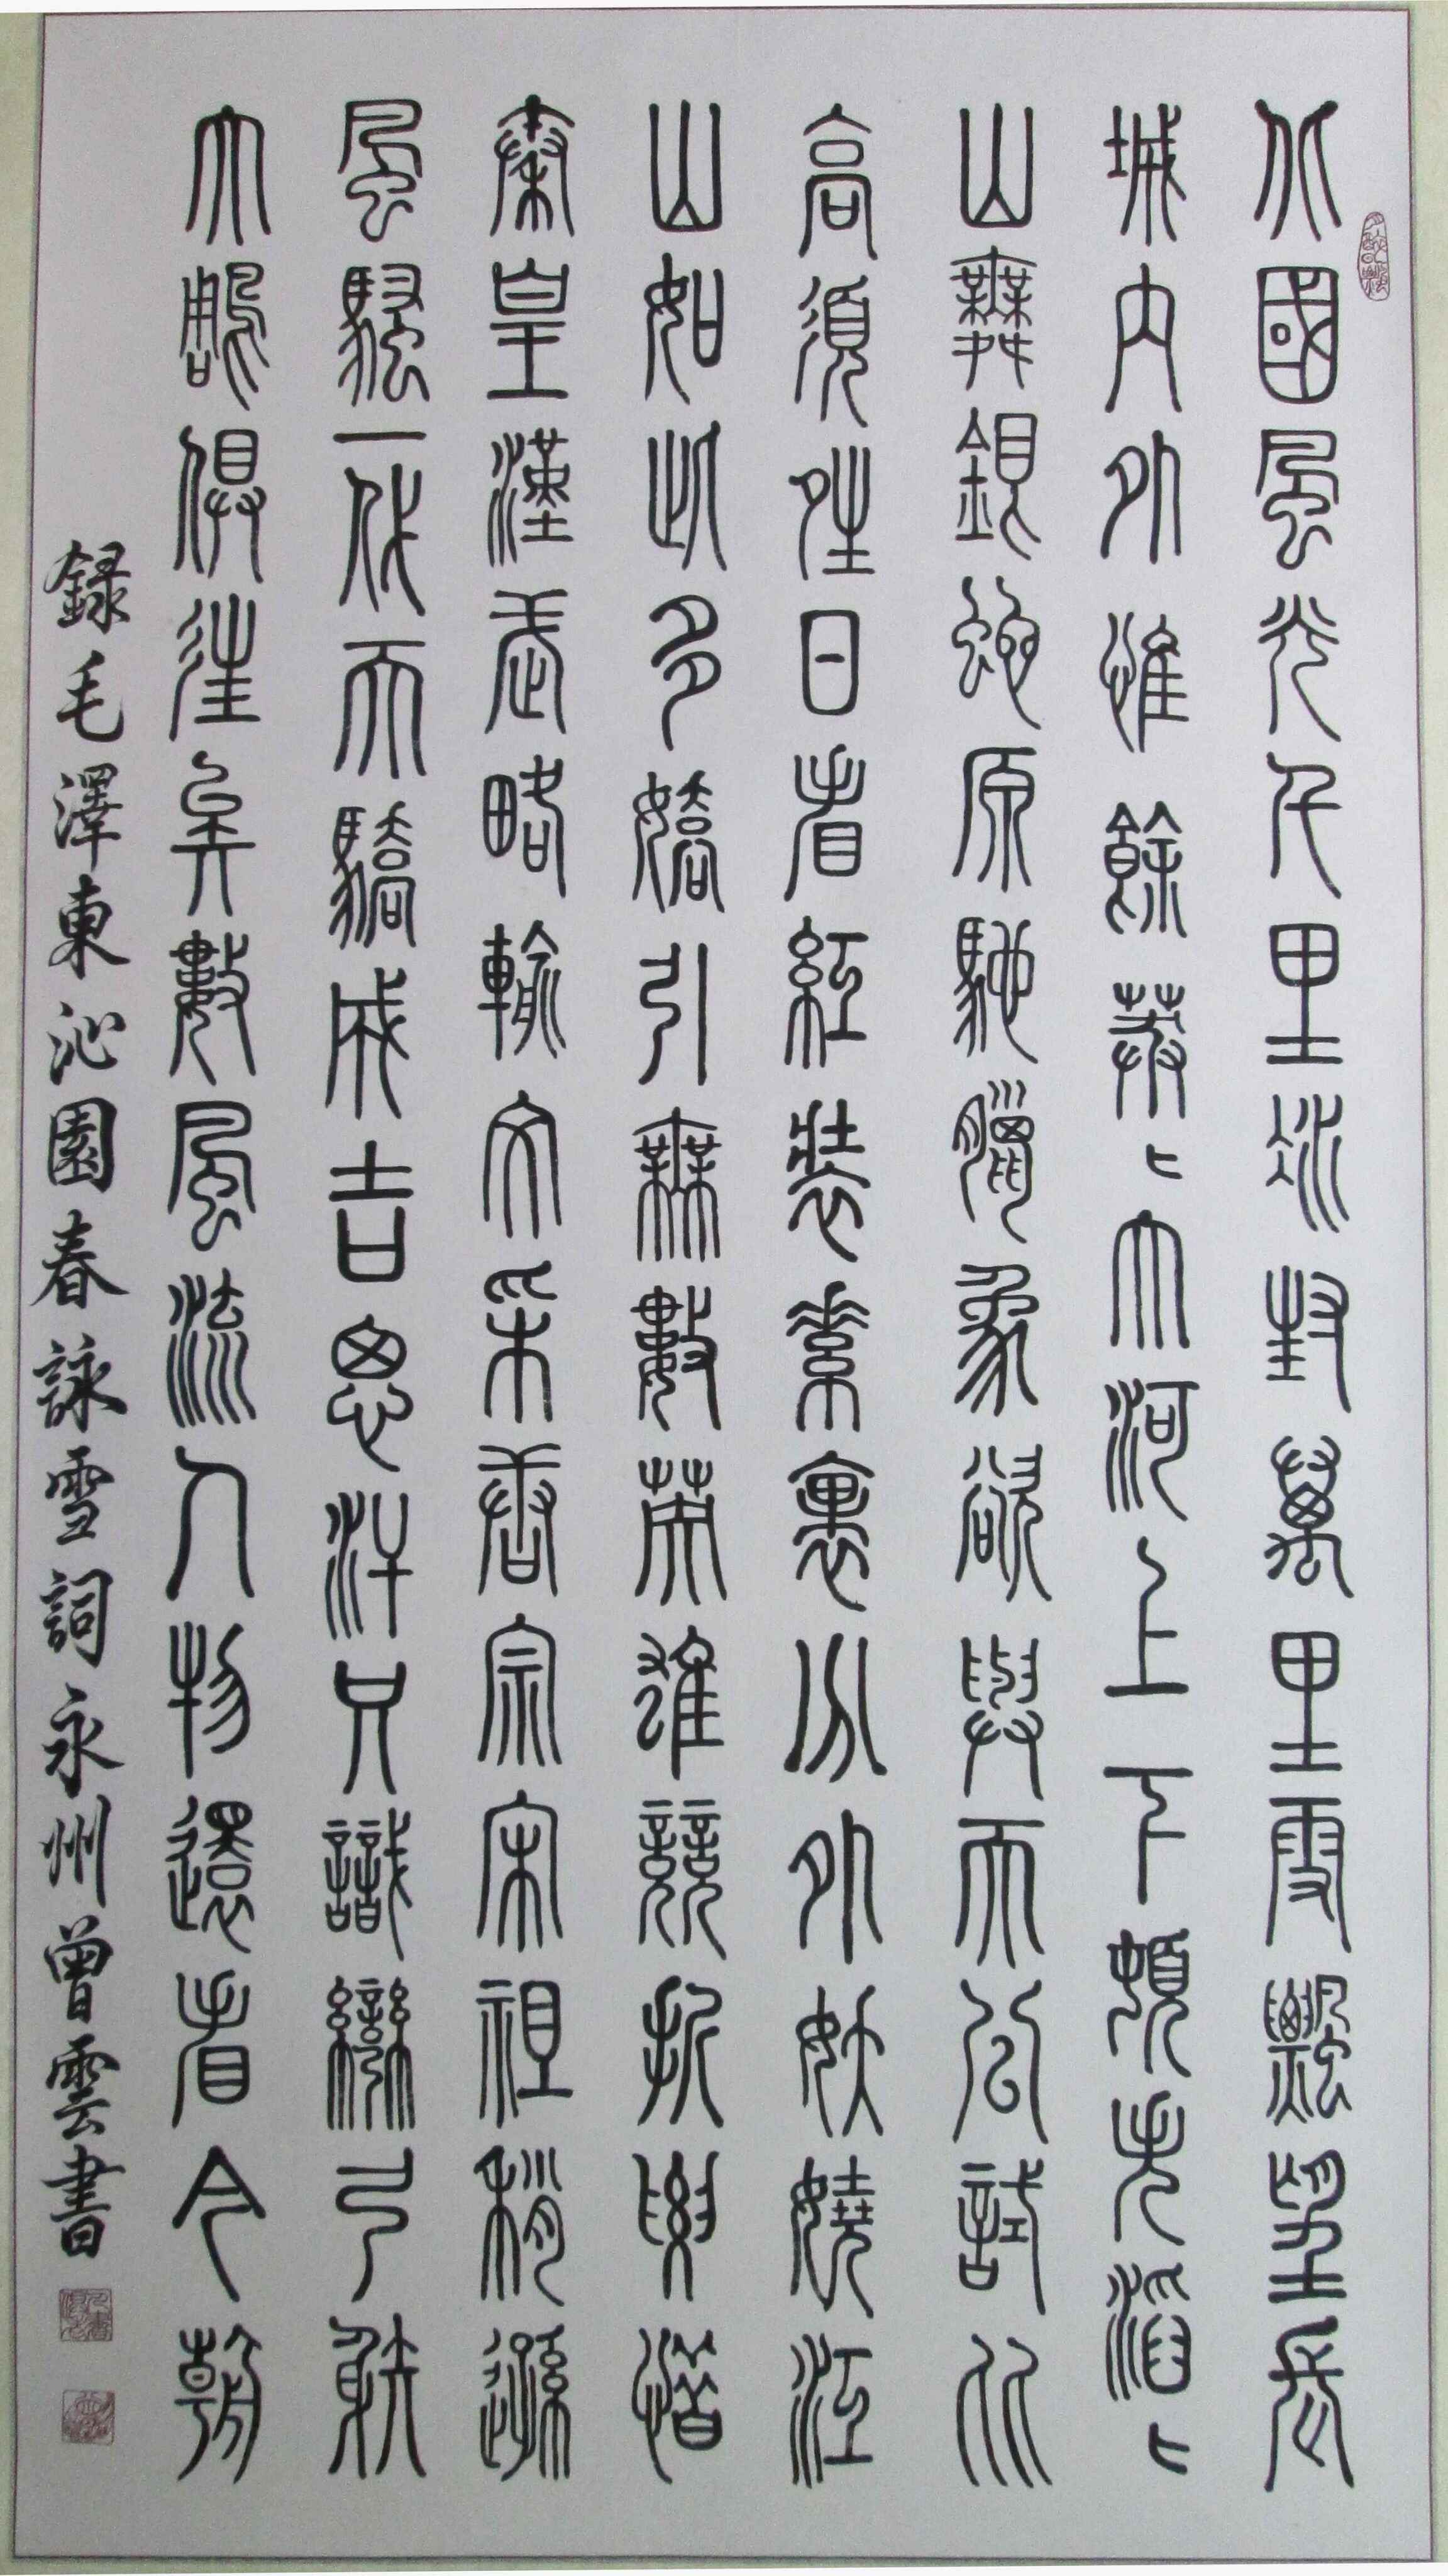 北國風光千里冰封萬里雪飄望長
城內外惟餘莽〻大河上下頓失滔〻
山舞銀蛇原馳臘象欲與天公試比
高須晴日看紅裝素裹分外妖嬈江
山如此多嬌引無數英雄競折腰惜
秦皇漢武略輸文采唐宗宋祖稍遜
風騷一代天驕成吉思汗只識彎弓射
大鵰俱往矣數風流人物還看今朝
録毛澤東沁園春詠雪詞永州曾雲書